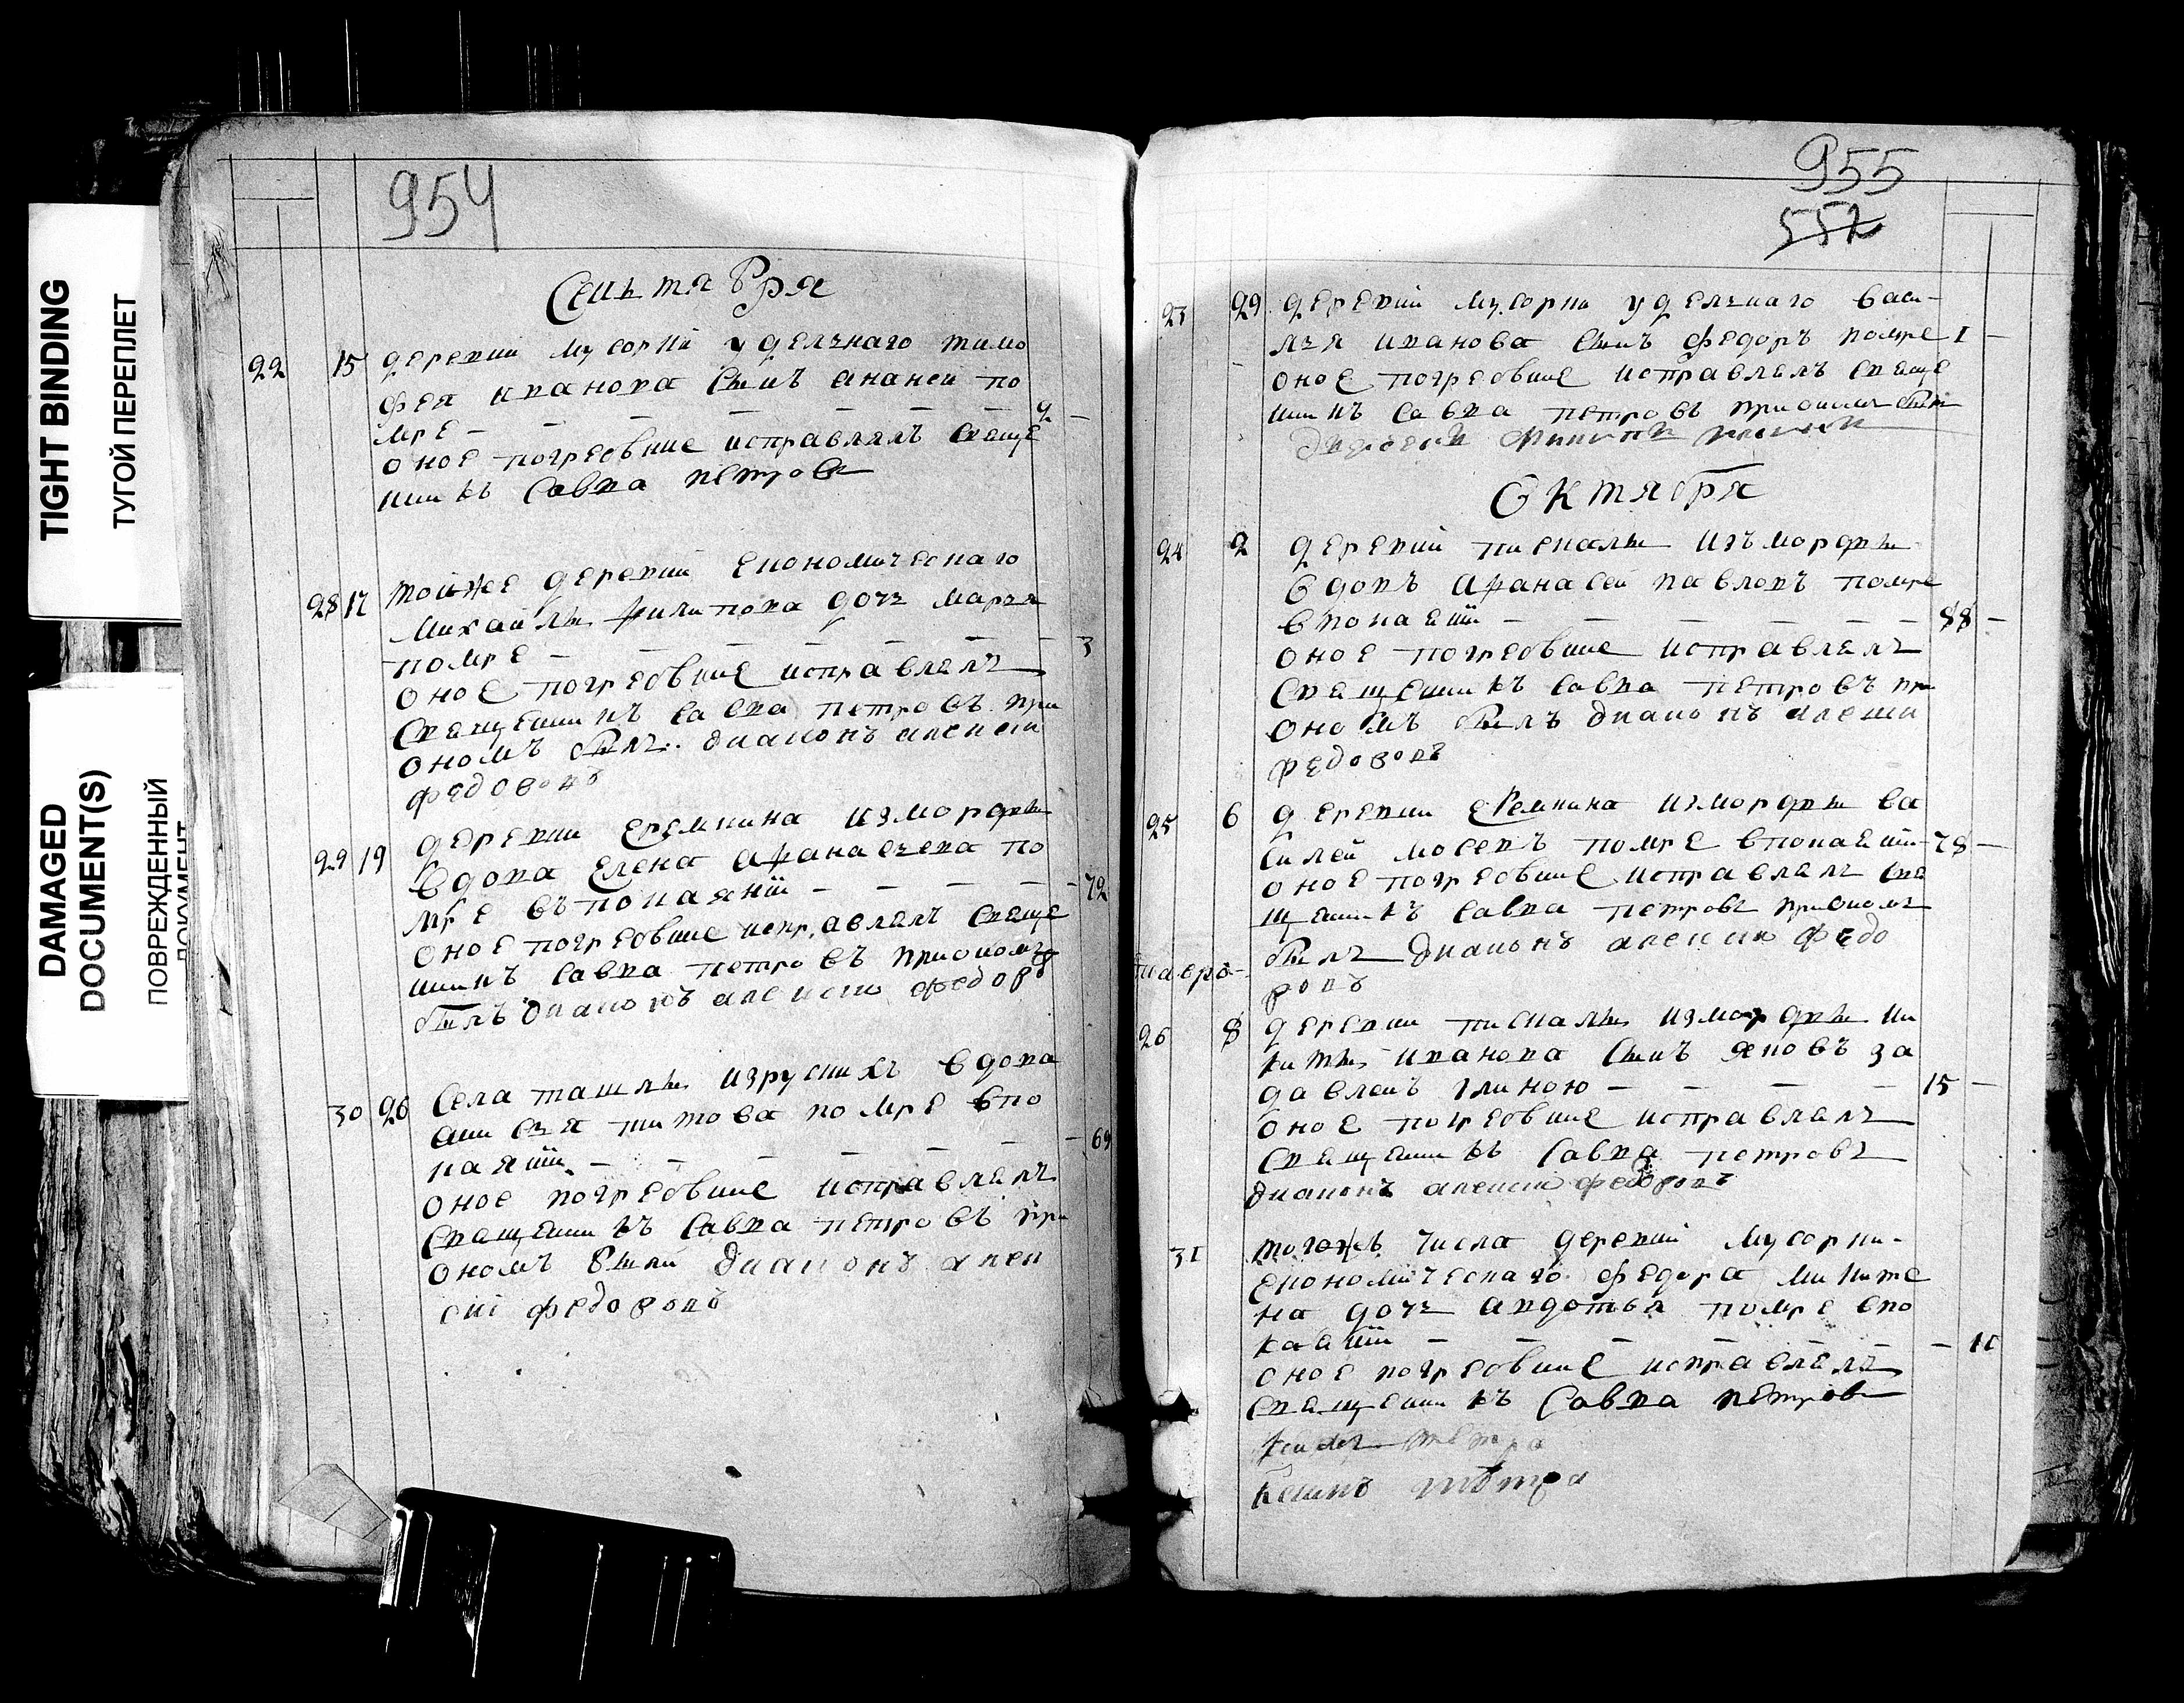 TIGHT BINDING
ТУГОЙ ПЕРЕПЛЕТ
DAMAGED
DOCUMENT(S)
ПОВРЕЖДЕННЫЙ
ДОКУМЕНТ
954
Сентября
22 15 деревни Мусорки удельнаго тимо
фея иванова сынъ ананеи по
мре 2
оное погребение исправлялъ свеще
нникъ Савва петровъ
28 17 тойже деревни економическаго
михайлы филипова дочь марья
помре 3
оное погребение исправлялъ
священникъ савва петровъ при
ономъ былъ диаконъ алексеи
федоровъ
29 19 деревни еремкина измордвы
вдова елена афанасьева по
мре въ покаянии 72
оное погребение исправлялъ свеще
нникъ савва петровъ приономъ
былъ диаконъ алексеи федоровъ
30 26 села ташлы изрускихъ вдова
ани сья титова помре впо
каянии 69
оное погребение исправлялъ
священникъ савва петровъ при
ономъ были диаконъ алек
сеи федоровъ
955
557
23 29 деревни мусорки удельнаго васи-
лья иванова сынъ федоръ помре 1
оное погребение исправлялъ свеще
нникъ савва петровъ приономъ были
Октября
24 2 деревни пискалы изъ мордвы
вдовъ афанасей павловъ помре
впокаении 88
оное погребение исправлялъ
священникъ савва петровъ при
ономъ былъ диаконъ алексеи
федоровъ
25 6 деревни еремкина измордвы ва
силей мосевъ помре впокаении 78
оное погребение исправлялъ свя
щенникъ савва петровъ приономъ
былъ диаконъ алексеи федо
ровъ
26 8 деревни пискалы измордвы ни
киты иванова сынъ яковъ за
давленъ глиною 15
оное погребение исправлялъ
священникъ савва петровъ
диаконъ алексеи федоровъ
31 тогожъ числа деревни мусорки
економическаго федора миките
на дочь авдотья помре впо
каянии 11
оное погребение исправлялъ
священникъ савва петровъ